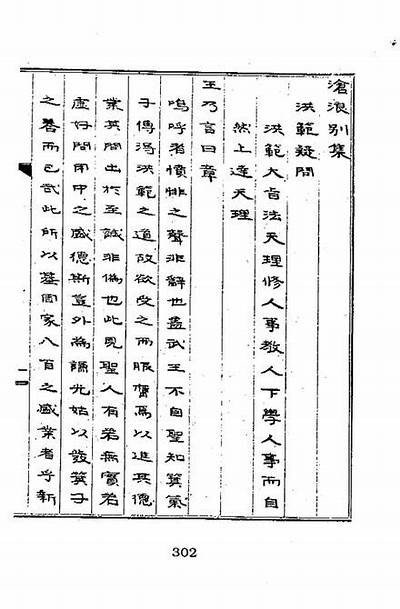 滄浪別集
洪範疑問
洪範大旨法天理修人事教人下學人事而自
然上達天理
王乃言曰章
嗚呼者憤悱之聲非辭也蓋武王不自聖知箕
子傳得洪範之道故欲受之而服膺焉以進其德
業其問出於至誠非偽也此見聖人有若無實若
虛好問用中之盛德斯豈外為謙光姑以發箕子
之蓄而已哉此所以基周家八百之盛業者乎新
302